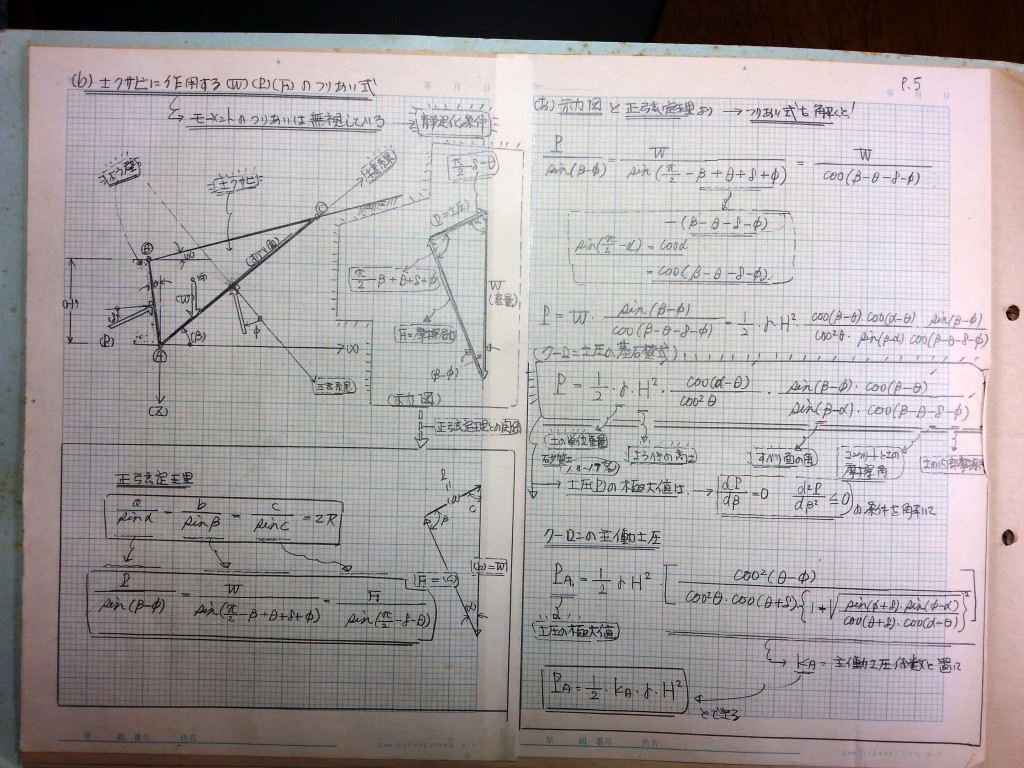 (b) 土クサビに作用する(W)(P)(F)のつりあい式
モーメントのつりあいは無視している
静定化条件
土クサビ
主働土圧
(β)
(X)
(Z)
H
φ
π/2-δ-θ
P=土圧
π/2-β+θ+δ+φ
W
(重量)
(β-φ)
(示力図)
正弦定理との関係
正弦定理
a/sinα = b/sinβ = c/sinC = 2R
P/sin(β-φ) = W/sin(π/2-β+θ+δ+φ) = F/sin(π/2-δ-θ)
(b)=W
P.5
(あ) 示力図と正弦定理より → つりあい式を解くと!
P/sin(β-φ) = W/sin(π/2-β+θ+δ+φ) = W/cos(β-θ-δ-φ)
-(β-θ-δ-φ)
sin(π/2-α) = cosα
= cos(β-θ-δ-φ)
P = W・sin(β-φ)/cos(β-θ-δ-φ) = 1/2・γ・H²・cos(β-θ)・cos(α-θ)・sin(β-φ)/cos²θ・sin(β-α)・cos(β-θ-δ-φ)
(クーロン土圧の基礎式)
P = 1/2・γ・H²・cos(α-θ)/cos²θ・sin(β-φ)・cos(β-θ)/sin(β-α)・cos(β-θ-δ-φ)
土の単位重量
ようへきの高さ
すべり面の角
コンクリートと土の
摩擦角
土の内部摩擦角
土圧(P)の極大値は、→ dP/dβ=0 d²P/dβ²≦0 の条件を解いて
クーロンの主働土圧
PA = 1/2・γ・H²・[cos²(θ-φ)/cos²θ・cos(θ+δ){1+√sin(φ+δ)・sin(φ-α)/cos(θ+δ)・cos(α-θ)}²]
(土圧の極大値)
KA = 主働土圧係数と置いて
PA = 1/2・KA・γ・H²
とできる
年 組 番号 氏名
年 組 番号 氏名